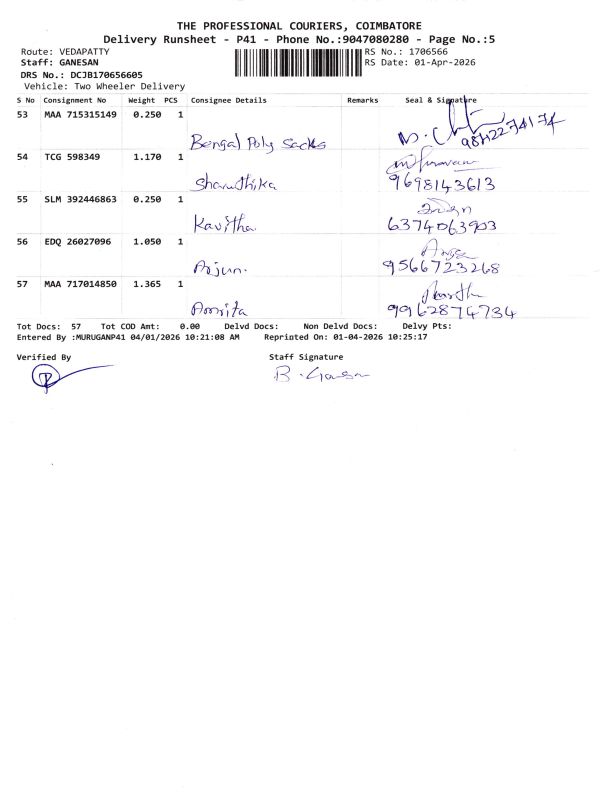 THE PROFESSIONAL COURIERS, COIMBATORE
Delivery Runsheet - P41 - Phone No.:9047080280 - Page No.:5
Route: VEDAPATTY RS No.: 1706566
Staff: GANESAN RS Date: 01-Apr-2026
DRS No.: DCJB170656605
Vehicle: Two Wheeler Delivery
S No Consignment No Weight PCS Consignee Details Remarks Seal & Signature
53 MAA 715315149 0.250 1
Bengal Poly Sacks
54 TCG 598349 1.170 1
Sharuthika 9698143613
55 SLM 392446863 0.250 1
Kavitha 6374063903
56 EDQ 26027096 1.050 1
Arjun. 9566723268
57 MAA 717014850 1.365 1
Amrita 9962874734
Tot Docs: 57 Tot COD Amt: 0.00 Delvd Docs: Non Delvd Docs: Delvy Pts:
Entered By :MURUGANP41 04/01/2026 10:21:08 AM Reprinted On: 01-04-2026 10:25:17
Verified By Staff Signature
B. Ganesan